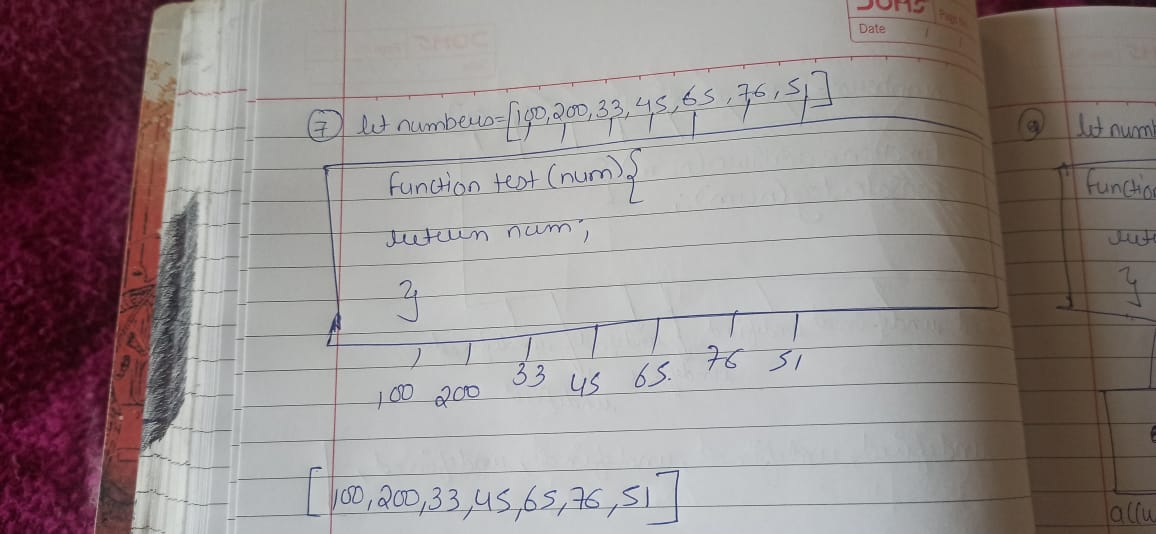 Date
⑦ let numbers=[100,200,33,45,65,76,51]
function test (num){
return num;
}
100 200 33 45 65. 76 51
[100,200,33,45,65,76,51]
⑨ let num
function
}